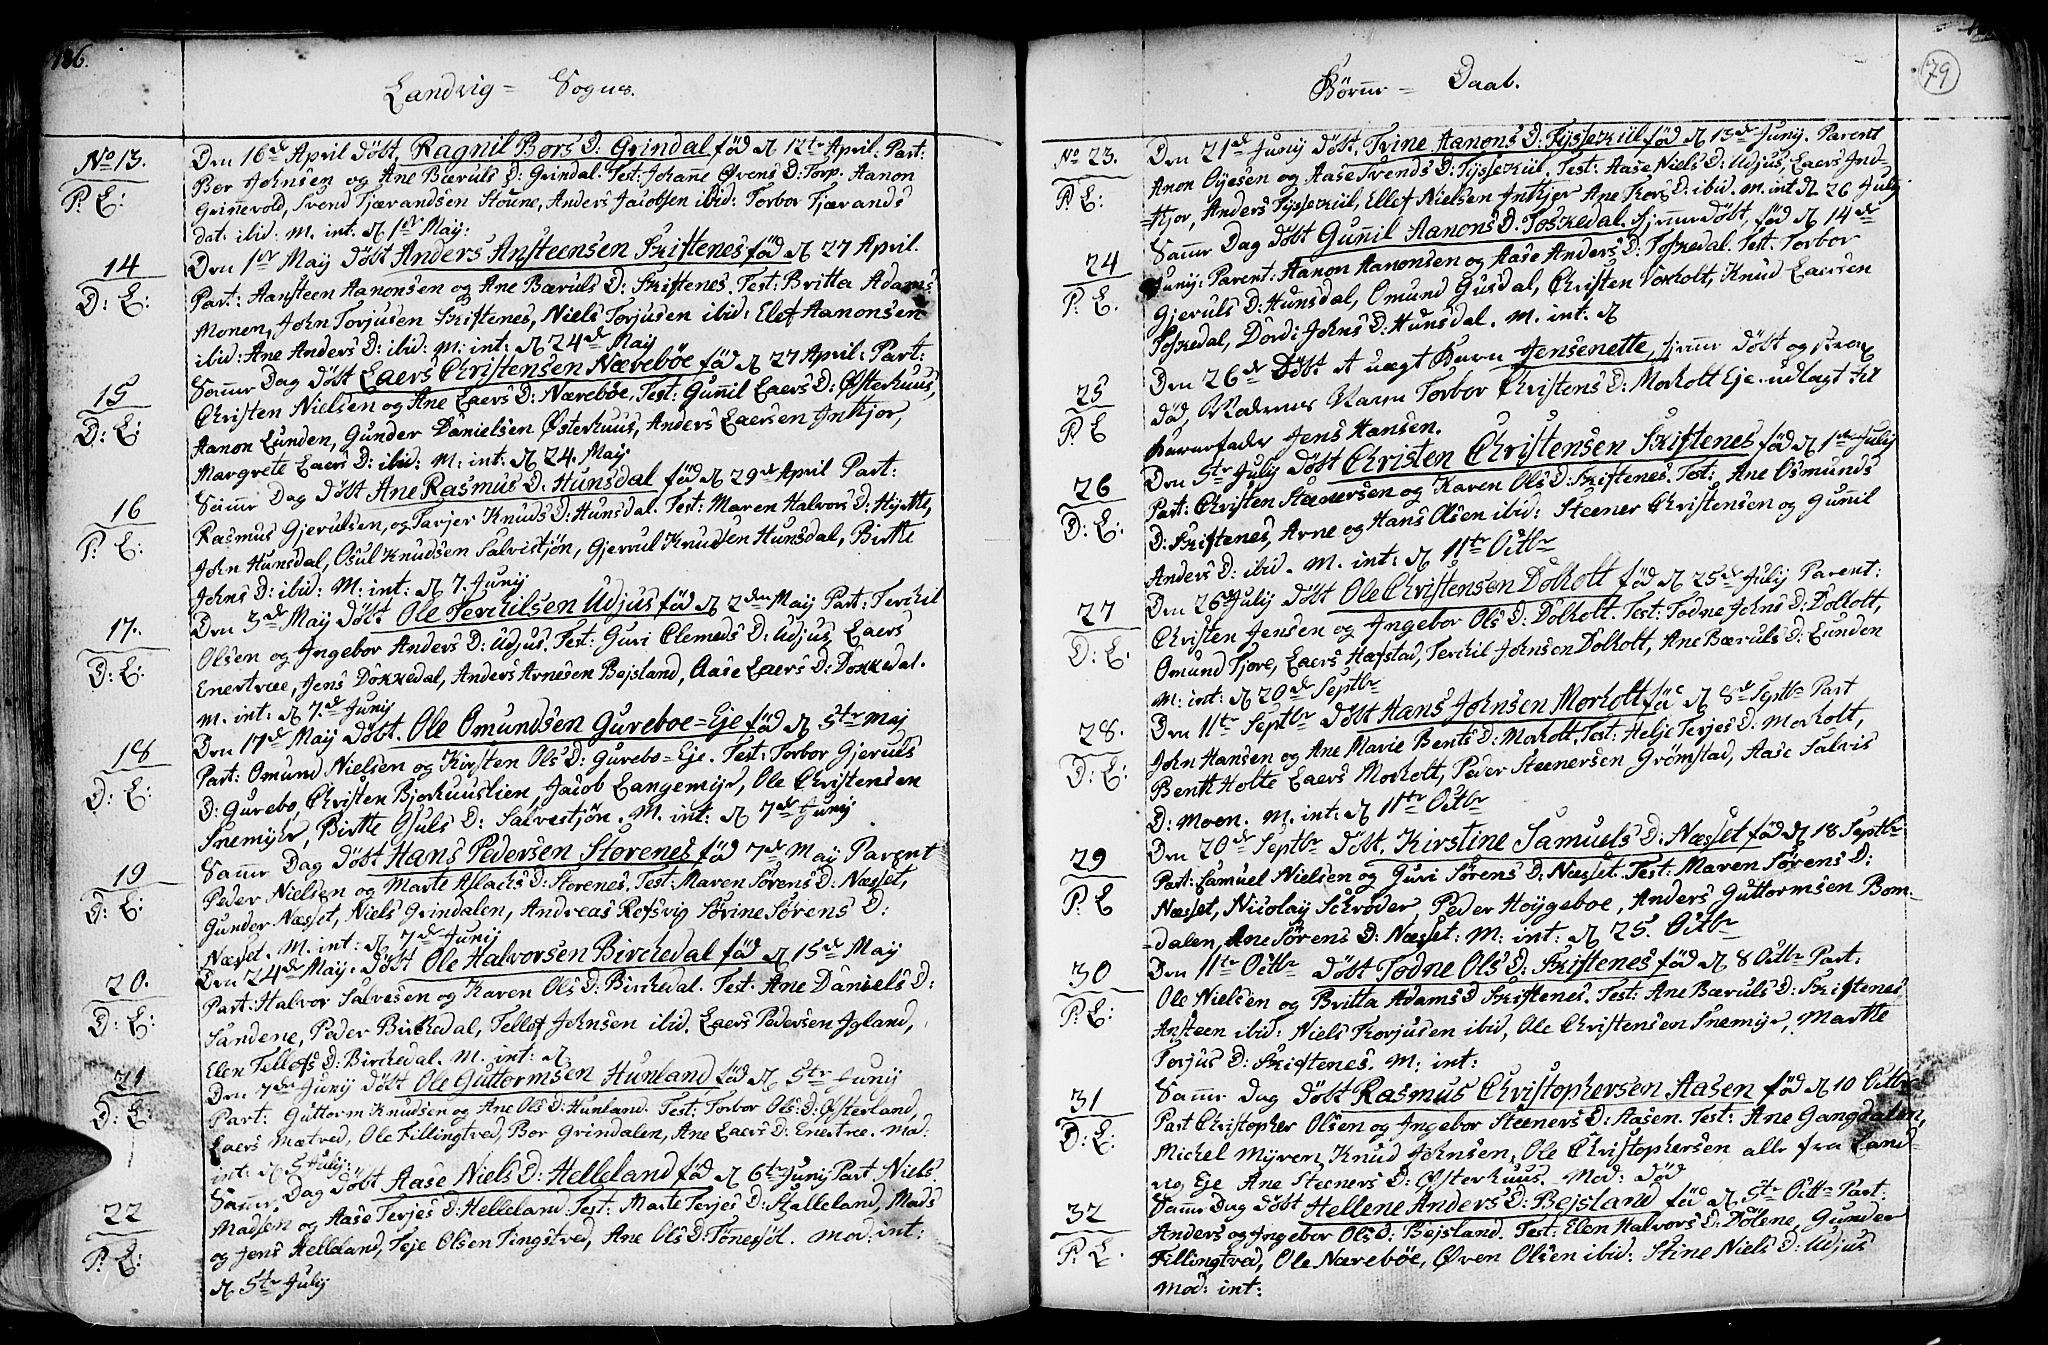 186.
Landvig = Sogns.
No 13.
P: E:
Den 16de April döbt, Ragnil Bors D: Grindal föd d 12te April: Part:
Bor Johnsen og Ane Bæruls D: Grindal. Test: Johane Øvens D: Torp. Aanon
Grinnevold, Svend Tjærandsen Stoune, Anders Jacobsen ibid: Torbor Tjærands
dat. ibid: M. int. d 1ste May:
14
D: E:
Den 1ste May döbt Anders Ansteensen Skiftenes föd d 27 April.
Part: Aansteen Aanonsen og Ane Bæruls D: Skiftenes. Test: Britta Adams
Monen, John Torjusen Skiftenes, Niels Torjusen ibid: Elef Aanonsen
ibid: Ane Anders D: ibid: M: int: d 24de May
15
D: E:
Samme Dag döbt Laers Christensen Nærebøe föd d 27 April: Part:
Christen Nielsen og Ane Laers D: Nærebøe. Test: Gunnil Laers D: Østerhuus,
Aanon Lunden, Gunder Danielsen Østerhuus, Anders Laersen Inkjor,
Margrete Laers D: ibid: M: int: d 24. May:
16
P: E:
Samme Dag döbt Ane Rasmus D: Hunsdal föd d 29de April Part:
Rasmus Gjerulsen, og Tarjer Knuds D: Hunsdal. Test: Maren Halvors D: Hytte,
John Hunsdal, Osul Knudsen Salvistjøn, Gjerrul Knudsen Hunsdal, Birthe
Johns D: ibid: M: int: d 7. Junij
17.
D: E:
Den 3de May döbt Ole Terchilsen Udjus föd d 2den May Part: Terchil
Olsen og Ingebor Anders D: Udjus. Test: Guri Clemeds D: Udjus, Laers
Enertræe, Jens Dokkedal, Anders Arnesen Bejsland, Aase Laers D: Dokkedal.
M. int: d 7.de Junij
18
D: E:
Den 17de May döbt. Ole Omundsen Gureboe=Eje föd d 5te Maj
Part: Omund Nielsen og Kirsten Ols D: Gurebo=Eje. Test: Torbor Gjeruls
D: Gurebo, Christen Bjorkuuslien, Jacob Langemyr, Ole Christensen
Snemyhr, Birthe Gjuls D: Salvestjön. M. int: d 7de Junij
19
D: E:
Samme Dag döbt Hans Pedersen Storenes föd 7de May Parent
Peder Nielsen og Marte Aslachs D: Storenes. Test: Maren Sörens D: Næsset,
Gunder Næsset, Niels Grindalen, Andreas Refsvig Sörine Sörens D:
Næsset. M. int: d 7de Junij
20.
D: E:
Den 24de May. döbt Ole Halvorsen Birchedal föd d 15de May
Part: Halvor Salvesen og Karen Ols D: Birchedal. Test: Ane Daniels D:
Sandene, Peder Birchedal, Tellof Johnsen ibid. Laers Pedersen Igland,
Elen Tellofs D: Birchedal. M. int: d
21
D: E:
Den 7de Junij döbt Ole Guttormsen Hunland föd d 5te Junij
Part: Guttorm Knudsen og Ane Ols D: Hunland. Test: Torbor Ols: D: Østerland,
Laers Mætved, Ole Fillingtved, Bor Grindalen, Ane Laers D: Enertree. Mod:
int: d 5 July:
22
P: E:
Samme Dag döbt Aase Niels D: Helleland föd d 6te Junij Part: Niels
Madsen og Aase Terjes D: Helleland. Test: Marte Terjes D: Stalleland, Mads
og Jens Helleland, Teje Olsen Tingstved, Ane Ols D: Tönessöl. Mod: int:
d 5te July
Börne = Daab.
79
No 23.
P. E:
Den 21de Junij döbt. Trine Aanons D: Fyssekiil föd d 13de Junij. Parent
Anon Oyesen og Aase Svends D: Fyssekiil. Test: Aase Niels D: Udjus, Laers Ind-
kjor, Anders Fyssekiil, Ellef Nielsen Inkjer Ane Tors D: ibid. M. int d 26 July
24
P: E.
Samme Dag döbt Gunnil Aanons D: Foskedal. hjemme döbt, föd d 14de
Junij: Parent: Aanon Aanonsen og Aase Anders D: Foskedal. Test: Torbor
Gjeruls D: Hunsdal, Omund Gusdal, Christen Voxholt, Knud Laersen
Foskedal, Dordi Johns D: Hunsdal. M. int: d
25
P: E
Den 26de Döbt et uægt Barn Jensenette, hjemme döbt og strax
död, Moderens Navn Torbor Christens D: Morholt Eje. udlagt til
Barnefader Jens Hansen.
26
D: E:
Den 5te July döbt Christen Christensen Skiftenes föd d 1ste July
Part: Christen Steenersen og Karen Ols D: Skiftenes. Test: Ane Osmunds
D: Skiftenes, Arne og Hans Olsen ibid: Steener Christensen og Gunnil
Anders D: ibid. M. int: d 11te Octbr
27
D: E:
Den 26de July döbt Ole Christensen Dolholt föd d 25de July Parent:
Christen Jensen og Ingebor Ols D: Dolholt. Test: Todne Johns D: Dolholt,
Omund Tjore, Laers Hæfstad, Terchil Johnsen Dolholt, Ane Bæruls D: Lunden
M: int: d 20de Septbr
28.
D: E:
Den 11te Septbr döbt Hans Johnsen Morholt föd d 8de Septbr Part
John Hansen og Ane Marie Bents D: Morholt. Test: Helje Terjes D: Morholt,
Benth Holte Laers Morholt, Peder Steenersen Grömstad, Aase Salvis
D: Moen. M. int: d 11te Octbr
29
P: E
Den 20de Septbr döbt, Kirstine Samuels D: Næsset föd d 18 Septbr
Part: Samuel Nielsen og Guri Sörens D: Næsset. Test: Maren Sörens D:
Næsset, Nicolay Schröder, Peder Höygeboe, Anders Guttormsen Bom-
dalen, Ane Sörens D: Næsset: M: int: d 25. Octbr
30
P: E:
Den 11te Octbr döbt Todne Ols D: Skiftenes föd d 8 Octbr Part:
Ole Nielsen og Britta Adams D Skiftenes. Test: Ane Bæruls D: Skiftenes,
Ansteen ibid: Niels Thorjusen ibid, Ole Christensen Snemyr, Marthe
Torjus D: Skiftenes. M. int:
31
D: E:
Samme Dag döbt Rasmus Christophersen Aasen föd d 10 Octbr
Part Christopher Olsen og Ingebor Steeners D: Aasen. Test: Ane Gangdalen,
Michel Myren, Knud Johnsen, Ole Christophersen alle fra Land-
vig Eje Ane Steeners D: Østerhuus. Mod: död
32
P: E.
Samme Dag döbt Hellene Anders D: Bejsland föd d 5te Octbr Part:
Anders og Ingebor Ols D: Bejsland. Test: Elen Halvors D: Dölene, Gunder
Fillingtved, Ole Nærebøe, Øven Olsen ibid: Stine Niels D: Udjus
Mod: int: